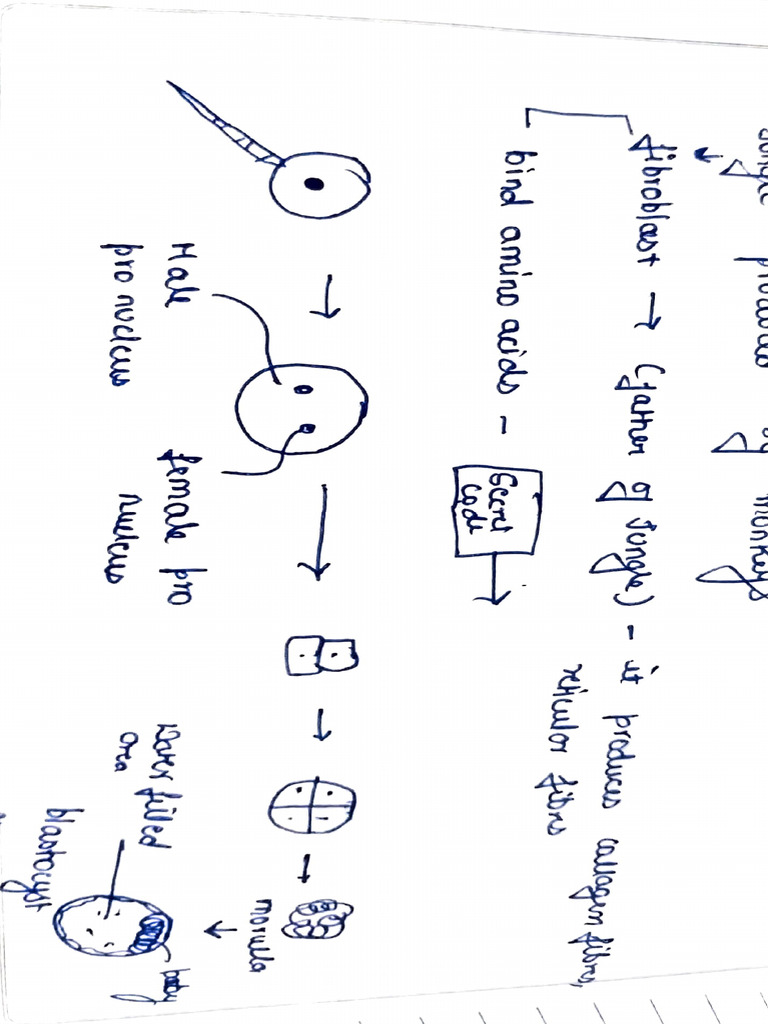 fibroblast → (father of Jungle) - it produces collagen fibres,
reticular fibres
bind amino acids - Secret
code
Male
pro nucleus
female pro
nucleus
morulla
body
Water filled
area
blastocyst